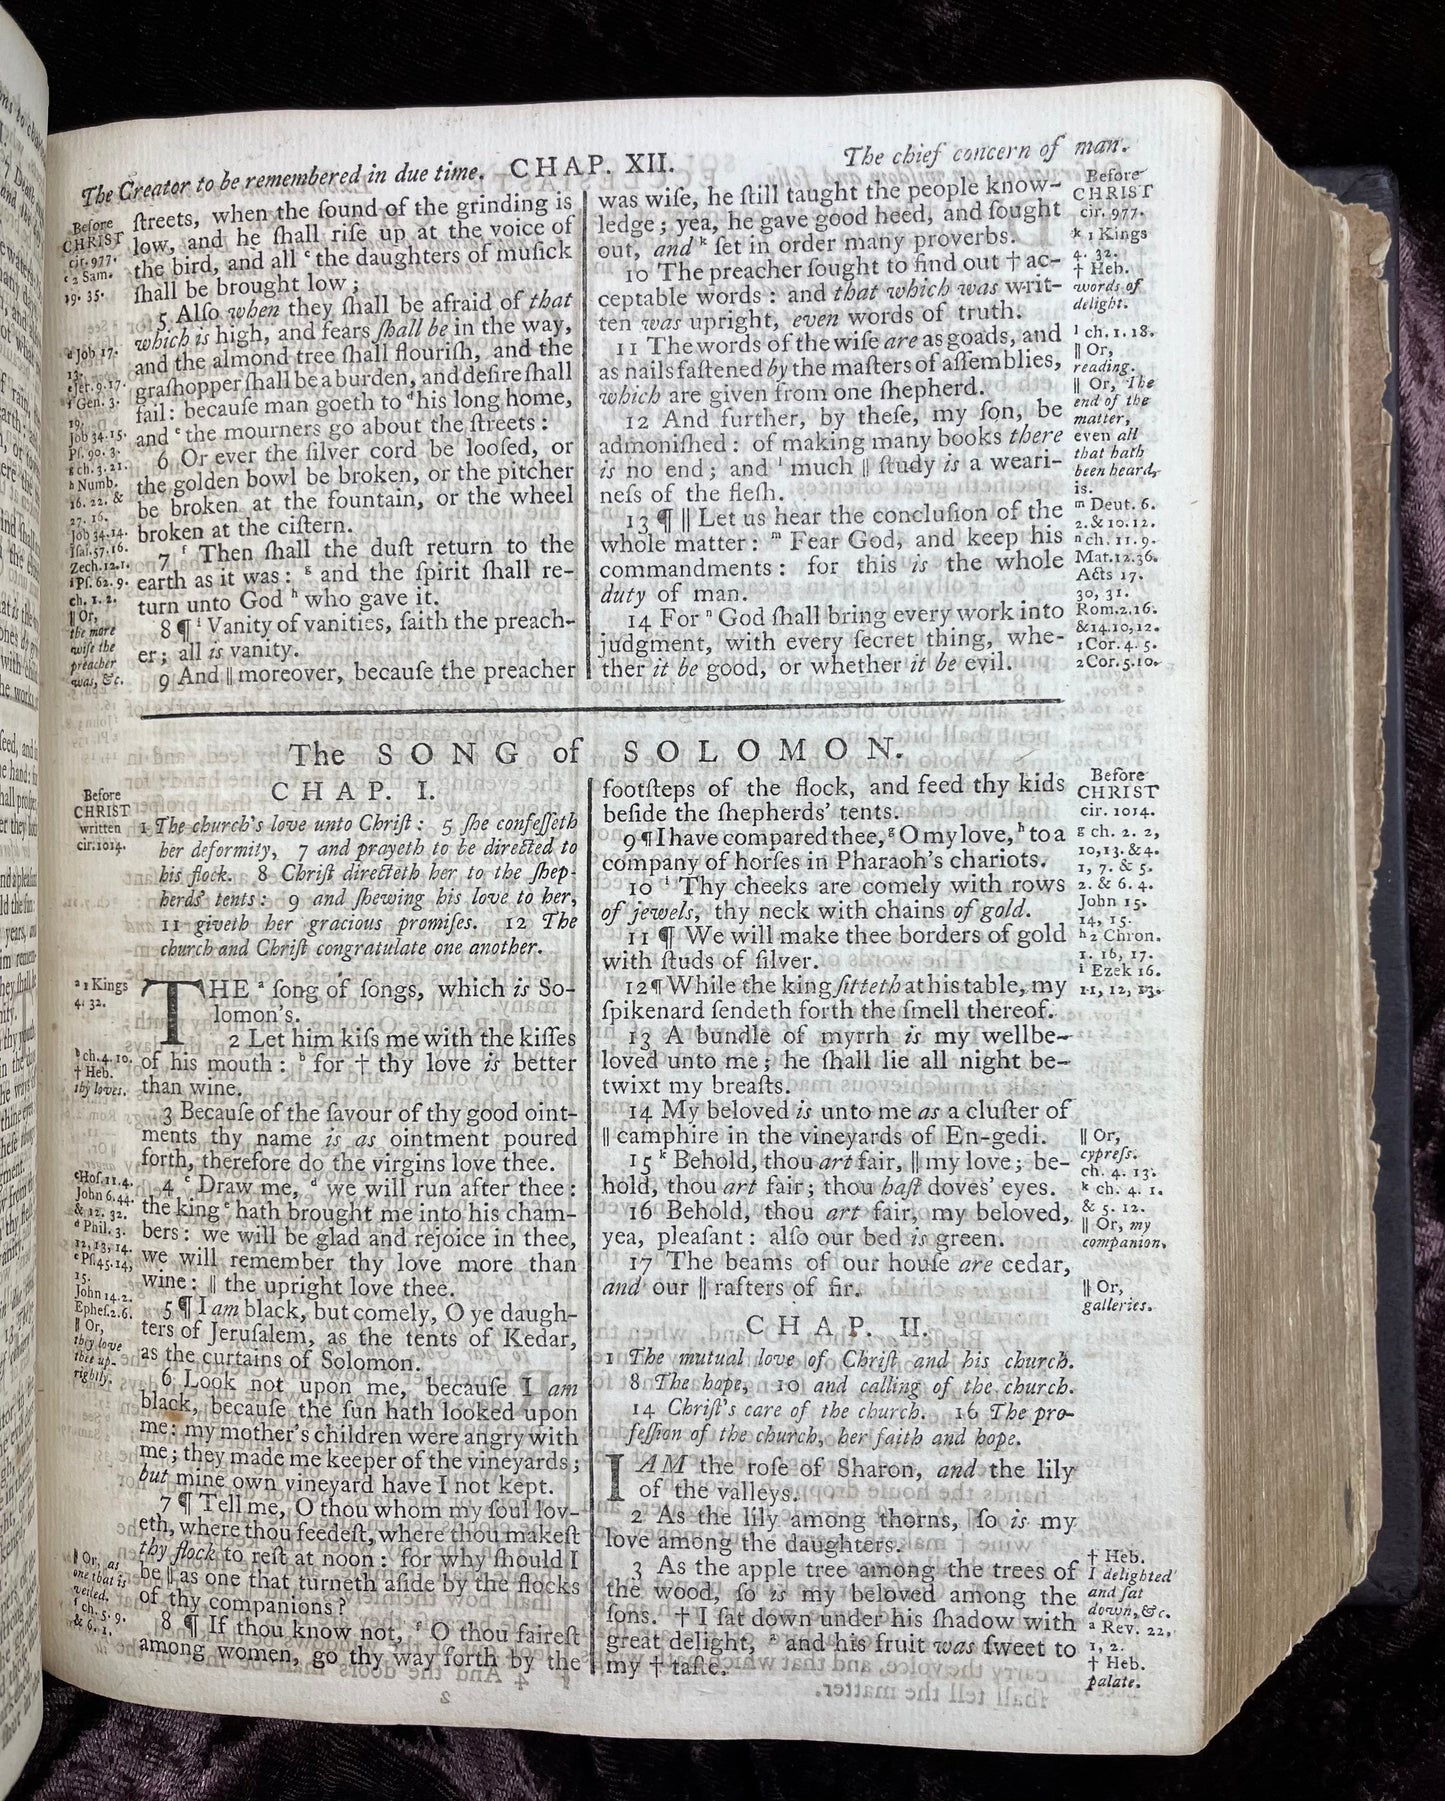 The Creator to be remembered in due time. CHAP. XII. The chief concern of man.
Before
CHRIST
cir. 977.
c 2 Sam.
19. 35.
d Job 17.
13.
e Jer. 9. 17.
f Gen. 3.
19.
Job 34. 15.
Pſ. 90. 3.
g ch. 3. 21.
h Numb.
16. 22. &
27. 16.
Job 34. 14.
Iſai. 57. 16.
Zech. 12. 1.
i Pſ. 62. 9.
ch. 1. 2.
‖ Or,
the more
wiſe the
preacher
was, &c.
ſtreets, when the ſound of the grinding is
low, and he ſhall riſe up at the voice of
the bird, and all c the daughters of muſick
ſhall be brought low;
5 Alſo when they ſhall be afraid of that
which is high, and fears ſhall be in the way,
and the almond tree ſhall flouriſh, and the
graſhopper ſhall be a burden, and deſire ſhall
fail: becauſe man goeth to d his long home,
and e the mourners go about the ſtreets:
6 Or ever the ſilver cord be looſed, or
the golden bowl be broken, or the pitcher
be broken at the fountain, or the wheel
broken at the ciſtern.
7 f Then ſhall the duſt return to the
earth as it was: g and the ſpirit ſhall re-
turn unto God h who gave it.
8 ¶ i Vanity of vanities, ſaith the preach-
er; all is vanity.
9 And ‖ moreover, becauſe the preacher
was wiſe, he ſtill taught the people know-
ledge; yea, he gave good heed, and ſought
out, and k ſet in order many proverbs.
10 The preacher ſought to find out † ac-
ceptable words: and that which was writ-
ten was upright, even words of truth.
11 The words of the wiſe are as goads, and
as nails faſtened by the maſters of aſſemblies,
which are given from one ſhepherd.
12 And further, by theſe, my ſon, be
admoniſhed: of making many books there
is no end; and l much ‖ ſtudy is a weari-
neſs of the fleſh.
13 ¶ ‖ Let us hear the concluſion of the
whole matter: m Fear God, and keep his
commandments: for this is the whole
duty of man.
14 For n God ſhall bring every work into
judgment, with every ſecret thing, whe-
ther it be good, or whether it be evil.
Before
CHRIST
cir. 977.
k 1 Kings
4. 32.
† Heb.
words of
delight.
l ch. 1. 18.
‖ Or,
reading.
‖ Or, the
end of the
matter,
even all
that hath
been heard,
is.
m Deut. 6.
2. & 10. 12.
n ch. 11. 9.
Mat. 12. 36.
Acts 17.
30, 31.
Rom. 2. 16.
& 14. 10, 12.
1 Cor. 4. 5.
2 Cor. 5. 10.
The SONG of SOLOMON.
Before
CHRIST
written
cir. 1014.
a 1 Kings
4. 32.
b ch. 4. 10.
† Heb.
thy loves.
c Hoſ. 11. 4.
John 6. 44.
& 12. 32.
d Phil. 3.
12, 13, 14.
e Pſ. 45. 14,
15.
John 14. 2.
Epheſ. 2. 6.
‖ Or,
they love
thee up-
rightly.
‖ Or, as
one that is
veiled.
f ch. 5. 9.
& 6. 1.
CHAP. I.
1 The church's love unto Chriſt: 5 ſhe confeſſeth
her deformity, 7 and prayeth to be directed to
his flock. 8 Chriſt directeth her to the ſhep-
herds' tents: 9 and ſhewing his love to her,
11 giveth her gracious promiſes. 12 The
church and Chriſt congratulate one another.
THE a ſong of ſongs, which is So-
lomon's.
2 Let him kiſs me with the kiſſes
of his mouth: b for † thy love is better
than wine.
3 Becauſe of the ſavour of thy good oint-
ments thy name is as ointment poured
forth, therefore do the virgins love thee.
4 c Draw me, d we will run after thee:
the king e hath brought me into his cham-
bers: we will be glad and rejoice in thee,
we will remember thy love more than
wine: ‖ the upright love thee.
5 ¶ I am black, but comely, O ye daugh-
ters of Jeruſalem, as the tents of Kedar,
as the curtains of Solomon.
6 Look not upon me, becauſe I am
black, becauſe the ſun hath looked upon
me: my mother's children were angry with
me; they made me keeper of the vineyards;
but mine own vineyard have I not kept.
7 ¶ Tell me, O thou whom my ſoul lov-
eth, where thou feedeſt, where thou makeſt
thy flock to reſt at noon: for why ſhould I
be ‖ as one that turneth aſide by the flocks
of thy companions?
8 ¶ If thou know not, f O thou faireſt
among women, go thy way forth by the
footſteps of the flock, and feed thy kids
beſide the ſhepherds' tents.
9 ¶ I have compared thee, g O my love, h to a
company of horſes in Pharaoh's chariots.
10 i Thy cheeks are comely with rows
of jewels, thy neck with chains of gold.
11 ¶ We will make thee borders of gold
with ſtuds of ſilver.
12 ¶ While the king ſitteth at his table, my
ſpikenard ſendeth forth the ſmell thereof.
13 A bundle of myrrh is my wellbe-
loved unto me; he ſhall lie all night be-
twixt my breaſts.
14 My beloved is unto me as a cluſter of
‖ camphire in the vineyards of En-gedi.
15 k Behold, thou art fair, ‖ my love; be-
hold, thou art fair; thou haſt doves' eyes.
16 Behold, thou art fair, my beloved,
yea, pleaſant: alſo our bed is green.
17 The beams of our houſe are cedar,
and our ‖ rafters of fir.
CHAP. II.
1 The mutual love of Chriſt and his church.
8 The hope, 10 and calling of the church.
14 Chriſt's care of the church. 16 The pro-
feſſion of the church, her faith and hope.
I AM the roſe of Sharon, and the lily
of the valleys.
2 As the lily among thorns, ſo is my
love among the daughters.
3 As the apple tree among the trees of
the wood, ſo is my beloved among the
ſons. † I ſat down under his ſhadow with
great delight, a and his fruit was ſweet to
my † taſte.
Before
CHRIST
cir. 1014.
g ch. 2. 2,
10, 13. & 4.
1, 7. & 5.
2. & 6. 4.
John 15.
14, 15.
h 2 Chron.
1. 16, 17.
i Ezek 16.
11, 12, 13.
‖ Or,
cypreſs.
ch. 4. 13.
k ch. 4. 1.
& 5. 12.
‖ Or, my
companion.
‖ Or,
galleries.
† Heb.
I delighted
and ſat
down, &c.
a Rev. 22,
1, 2.
† Heb.
palate.